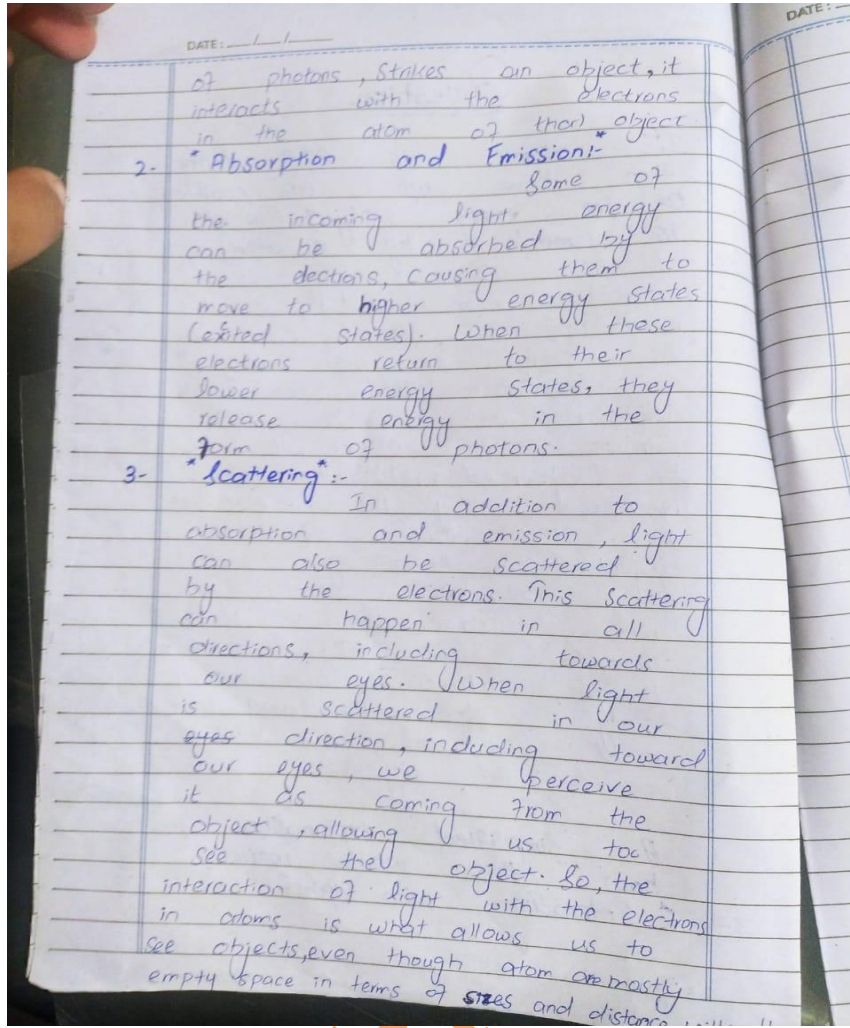 DATE: __/__/____
DATE:
of photons, Strikes an object, it
interacts with the electrons
in the atom of that object
2- *Absorption and Emission:-*
Some of
the incoming light energy
can be absorbed by
the electrons, causing them to
move to higher energy states
(exited states). When these
electrons return to their
lower energy states, they
release energy in the
form of photons.
3- *Scattering*:-
In addition to
absorption and emission, light
can also be scattered
by the electrons. This Scattering
can happen in all
directions, including towards
our eyes. When light
is scattered in our
eyes direction, including toward
our eyes, we perceive
it as coming from the
object, allowing us to
see the object. So, the
interaction of light with the electrons
in atoms is what allows us to
see objects, even though atom are mostly
empty space in terms of sizes and distance